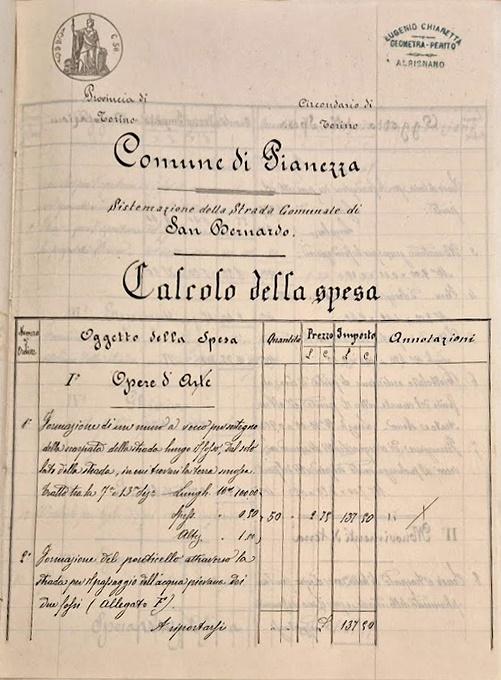 EUGENIO CHIARETTA
GEOMETRA-PERITO
ALPIGNANO
Provincia di Torino
Circondario di Torino
Comune di Pianezza
Sistemazione della Strada Comunale di
San Bernardo.
Calcolo della spesa
Numero d'Ordine
Oggetto della Spesa
Quantità
Prezzo
Importo
Annotazioni
L C L C
I° Opere d'Arte
1° Formazione di un muro a secco per sostegno
della scarpata della strada lungo il fosso, dal
lato della strada, in cui trovasi la terra smossa.
Tratto tra la 7a e 13a Sez. Lungh. 100,00
Spess. 0.50 50 2.75 137 50
Altez. 1.00
2° Formazione del ponticello attraverso la
strada per il passaggio dell'acqua piovana dei
due fossi (Allegato F).
A riportarsi L 137 50